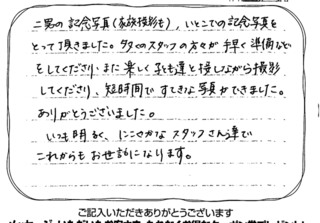 二男の記念写真(家族撮影も)、いとこでの記念写真を
とって頂きました。多くのスタッフの方々が手早く準備など
をしてくださり、また楽しく子ども達と接しながら撮影
してくださり、短時間ですてきな写真ができました。
ありがとうございました。
いつも明るく、にこやかなスタッフさん達で
これからもお世話になります。
ご記入いただきありがとうございます